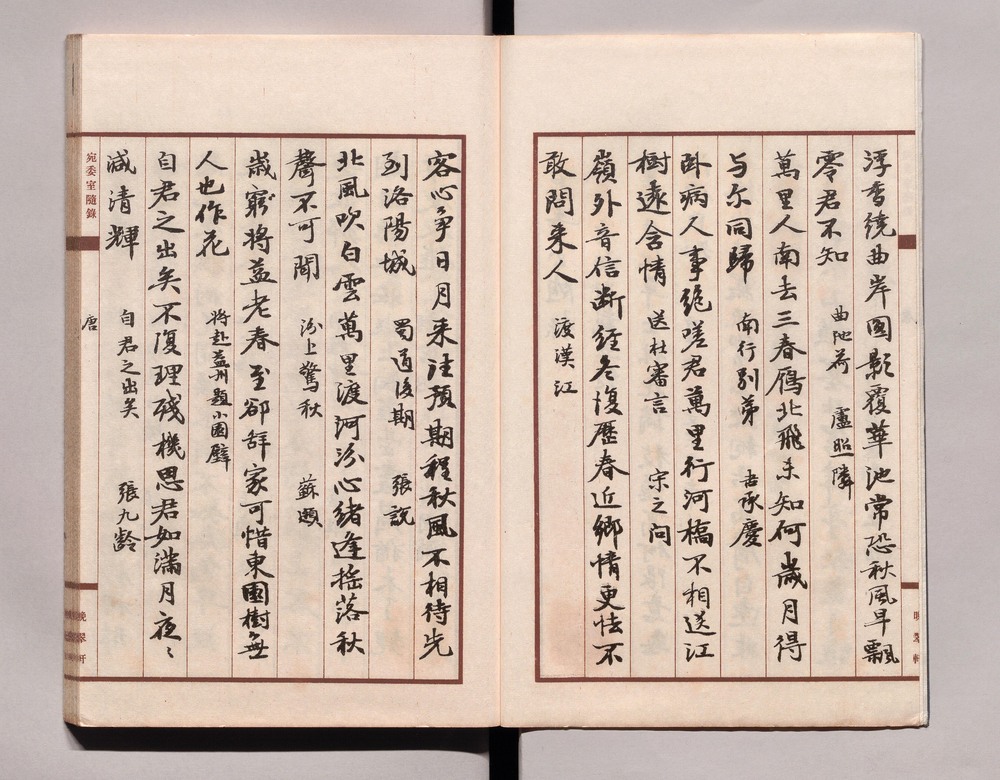 浮香繞曲岸圓影覆華池常恐秋風早飄
零君不知 曲池荷 盧照隣
萬里人南去三春鴈北飛未知何歲月得
与尔同歸 南行別弟 韋承慶
卧病人事絶嗟君萬里行河橋不相送江
樹遠含情 送杜審言 宋之问
嶺外音信断經冬復歷春近鄉情更怯不
敢問来人 渡漢江
晚翠軒
客心争日月来往預期程秋風不相待先
到洛陽城 蜀道後期 張説
北風吹白雲萬里渡河汾心緒逢摇落秋
聲不可聞 汾上驚秋 蘇頲
歳窮将益老春至郤辞家可惜東園樹無
人也作花 将赴益州題小園壁
自君之出矣不復理殘機思君如滿月夜〻
減清輝 自君之出矣 張九齡
宛委室隨錄
唐
晚翠軒